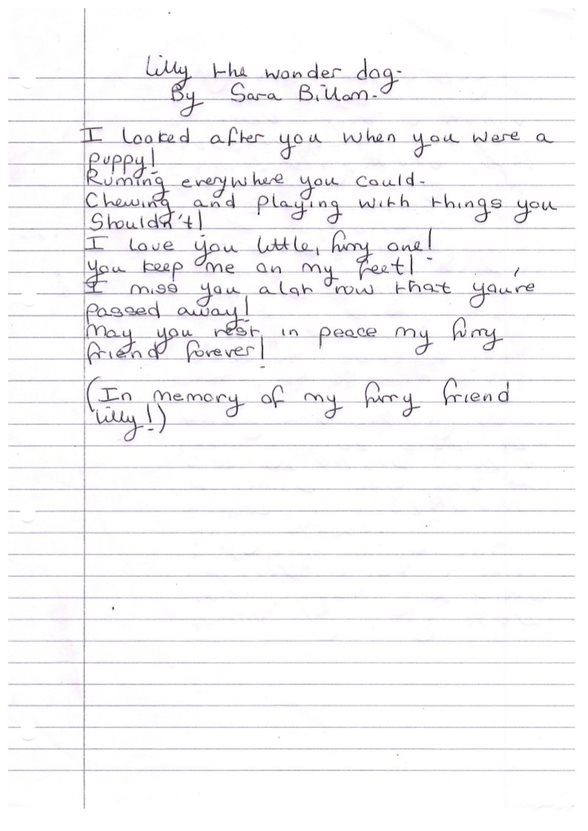 Lilly the wonder dog.
By Sara Billam.
I looked after you when you were a
puppy!
Running everywhere you could.
Chewing and playing with things you
Shouldn't!
I love you little, furry one!
you keep me on my feet!
I miss you alot now that you're
passed away!
May you rest in peace my furry
friend forever!
(In memory of my furry friend
Lilly!)